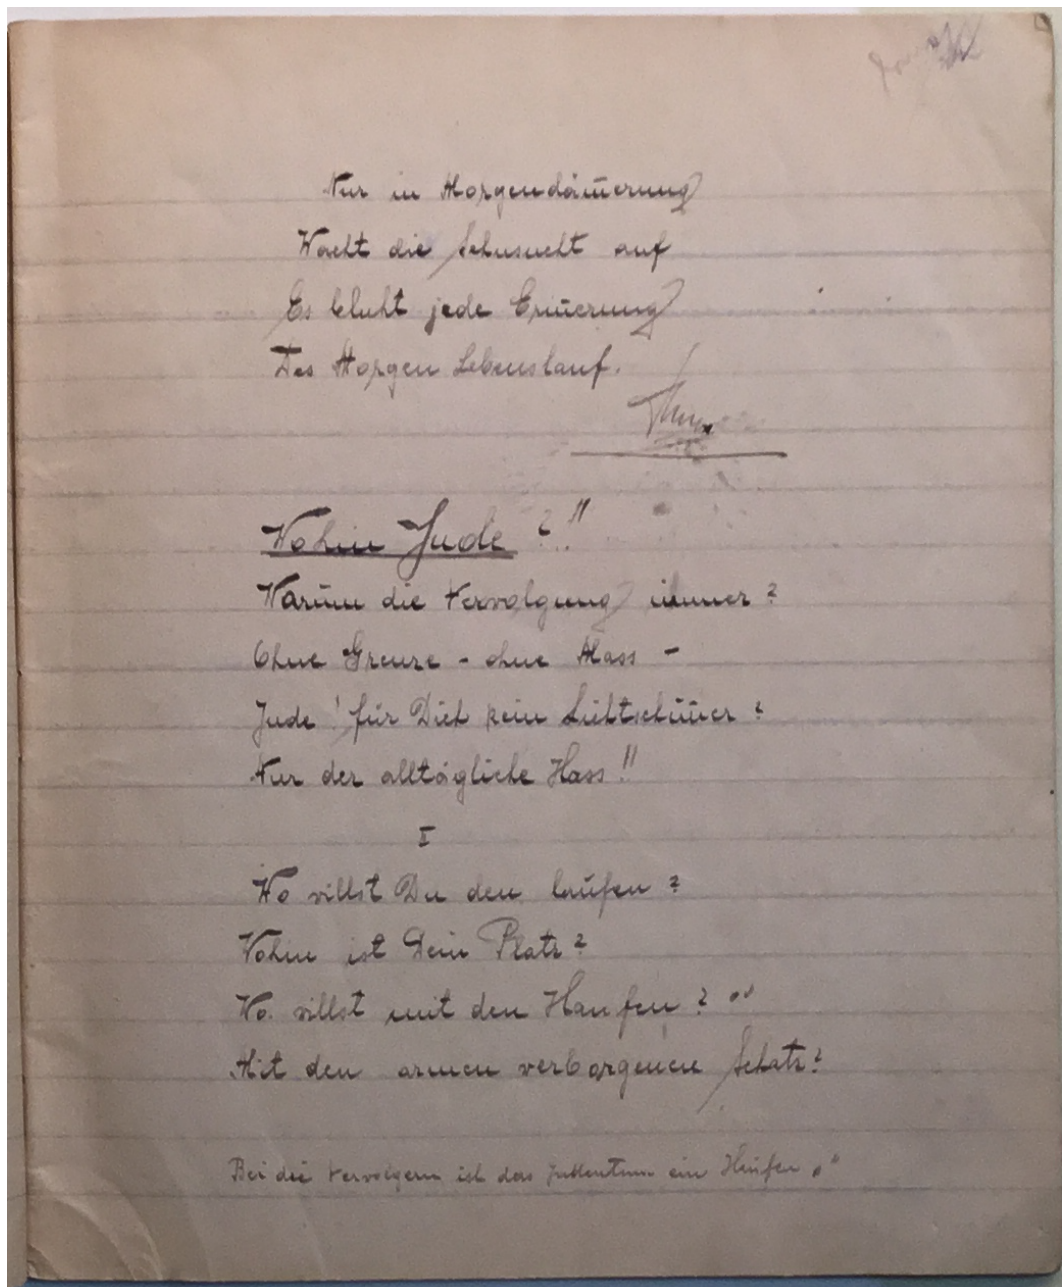 Nur in Morgendäm̄erung
Wacht die Sehnsucht auf
Es bluht jede Erin̄erung
Des Morgen Lebenslauf.
Wohin Jude ?!!
Warum die Vervolgung immer ?
Ohne Grenze - ohne Mass -
Jude ! für Dich kein Lichtschim̄er ?
Nur der alltägliche Hass !!
I
Wo villst Du den laufen ?
Vohin ist Dein Platz ?
Wo villst mit den Haufen ?
Mit den armen verborgenen Schatz ?
Bei die Vervolgern ist das Judentum ein Haufen